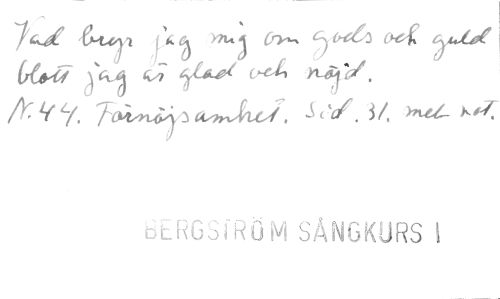 Vad bryr jag mig om gods och guld
blott jag är glad och nöjd.
N. 44. Förnöjsamhet. Sid. 31. mel not.
BERGSTRÖM SÅNGKURS I